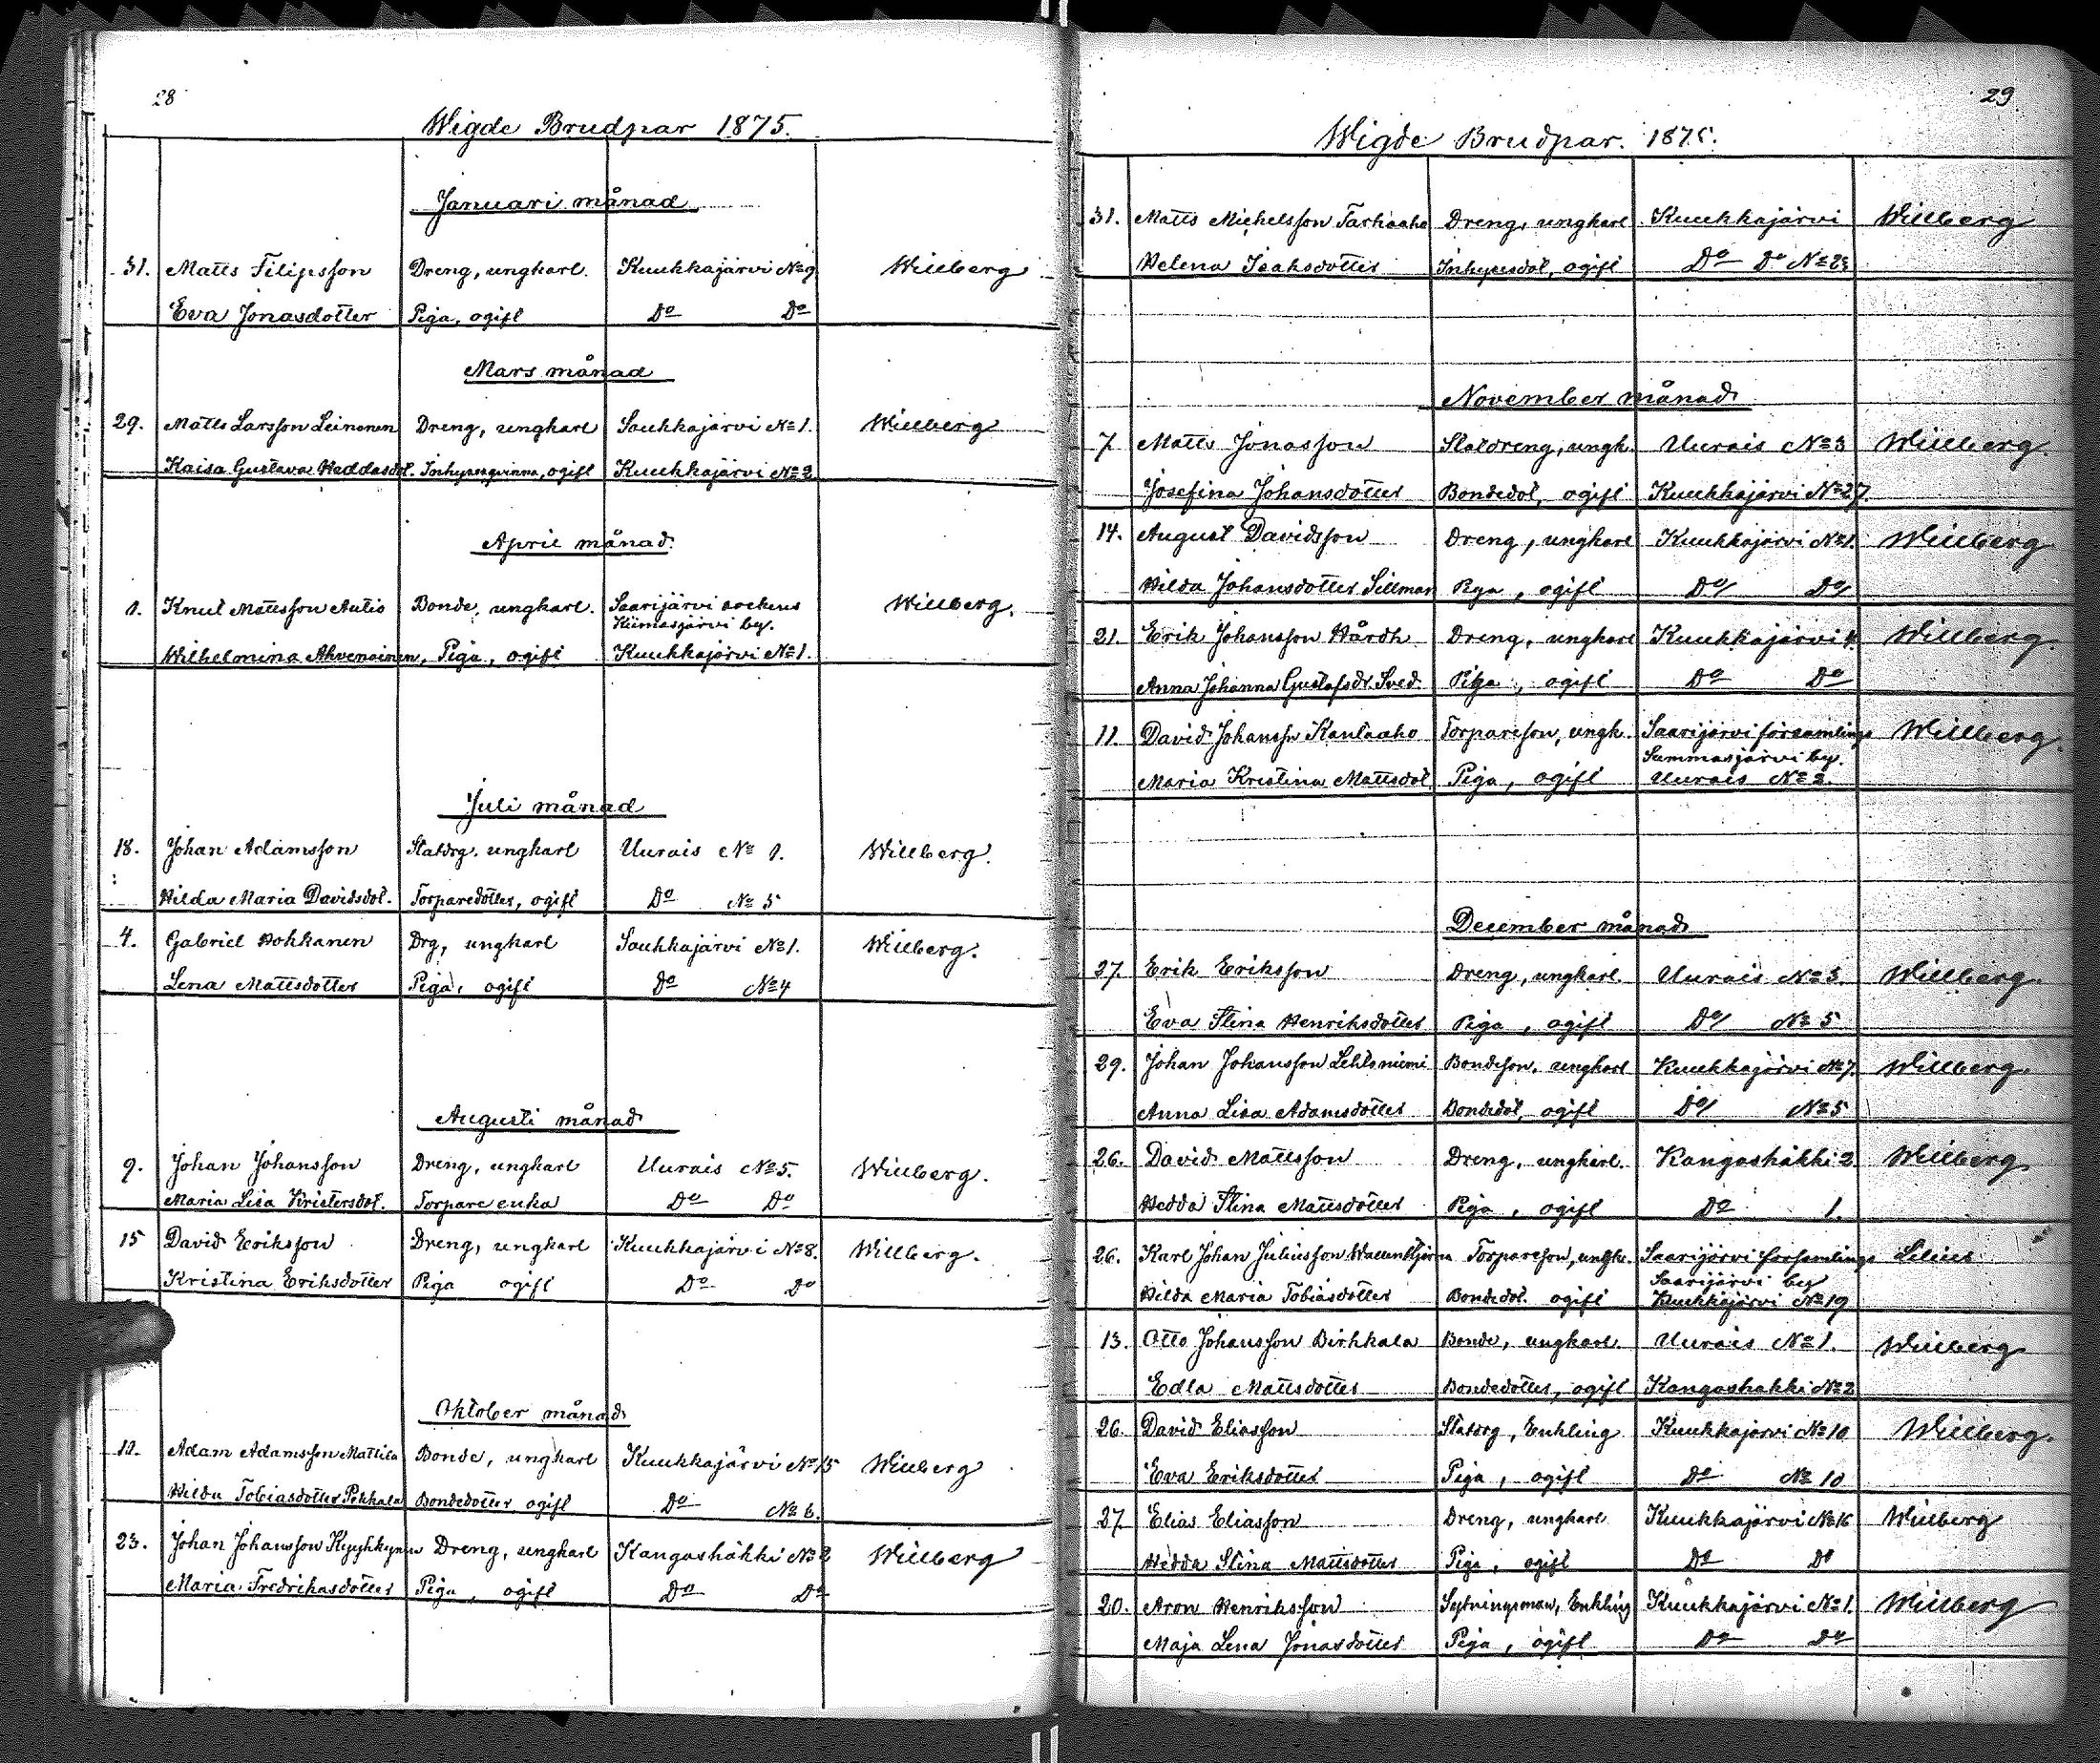 28
Wigde Brudpar 1875.
Januari månad
31. Matts Filipsson Dreng, ungkarl. Kuukkajärvi No 9 Willberg
Eva Jonasdotter Piga, ogift Do Do
Mars månad
29. Matts Larsson Leinonen Dreng, ungkarl Soukkajärvi No 1. Willberg
Kaisa Gustava Heddasdot. Inhysesqvinna, ogift Kuukkajärvi No 2
April månad
1. Knut Mattsson Autio Bonde, ungkarl. Saarijärvi sockens Willberg.
Kiimasjärvi by.
Wilhelmina Ahvenainen, Piga, ogift Kuukkajärvi No 1.
Juli månad
18. Johan Adamsson Statdrg. ungkarl Uurais No 1. Willberg.
Hilda Maria Davidsdot. Torparedotter, ogift Do No 5
4. Gabriel Hokkanen Drg, ungkarl Soukkajärvi No 1. Willberg.
Lena Mattsdotter Piga, ogift Do No 4
Augusti månad
9. Johan Johansson Dreng, ungkarl Uurais No 5. Willberg.
Maria Lisa Kristersdot. Torpare enka Do Do
15 David Eriksson Dreng, ungkarl Kuukkajärvi No 8. Willberg.
Kristina Eriksdotter Piga ogift Do Do
Oktober månad
Adam Adamsson Mattila Bonde, ungkarl Kuukkajärvi No 15 Willberg
Hilda Tobiasdotter Pekkala Bondedotter ogift Do No 6.
23. Johan Johansson Kyyhkynen Dreng, ungkarl Kangashäkki No 2 Willberg
Maria Fredrikasdotter Piga, ogift Do Do
29
Wigde Brudpar. 1875.
31. Matts Michelsson Tarhaaho Dreng, ungkarl Kuukkajärvi Willberg
Helena Isaksdotter Inhysesdot, ogift Do Do No
November månad
7. Matts Jonasson Statdreng, ungk. Uurais No 3 Willberg.
Josefina Johansdotter Bondedot, ogift Kuukkajärvi No 27.
14. August Davidsson Dreng, ungkarl Kuukkajärvi No 1. Willberg
Hilda Johansdotter Sillman Piga, ogift Do Do
21. Erik Johansson Hårdh Dreng, ungkarl Kuukkajärvi 4. Willberg.
Anna Johanna Gustafsdr Sved. Piga, ogift Do Do
11. David Johansson Kautaaho Torpareson, ungk. Saarijärvi församlings Willberg.
Summasjärvi by.
Maria Kristina Mattsdot Piga, ogift Uurais No 2.
December månad
27 Erik Eriksson Dreng, ungkarl. Uurais No 3. Willberg.
Eva Stina Henriksdotter Piga, ogift Do No 5
29. Johan Johansson Lehtoniemi Bondeson, ungkarl Kuukkajärvi No 7. Willberg.
Anna Lisa Adamsdotter Bondedot, ogift Do No 5
26. David Mattsson Dreng, ungkarl. Kangashäkki 2 Willberg
Hedda Stina Mattsdotter Piga, ogift Do 1.
26. Karl Johan Juliusson Torpareson, ungk. Saarijärvi församlings Lilius
Saarijärvi by
Hilda Maria Tobiasdotter Bondedot. ogift Kuukkajärvi No 19
13. Otto Johansson Pirkkala Bonde, ungkarl. Uurais No 1. Willberg
Edla Mattsdotter Bondedotter, ogift Kangashäkki No 2
26. David Eliasson Statdrg, Enkling Kuukkajärvi No 10 Willberg.
Eva Eriksdotter Piga, ogift Do No 10
27 Elias Eliasson Dreng, ungkarl Kuukkajärvi No 16 Willberg
Hedda Stina Mattsdotter Piga, ogift Do Do
20. Aron Henriksson Sytningsman, Enkling Kuukkajärvi No 1. Willberg
Maja Lena Jonasdotter Piga, ogift Do Do